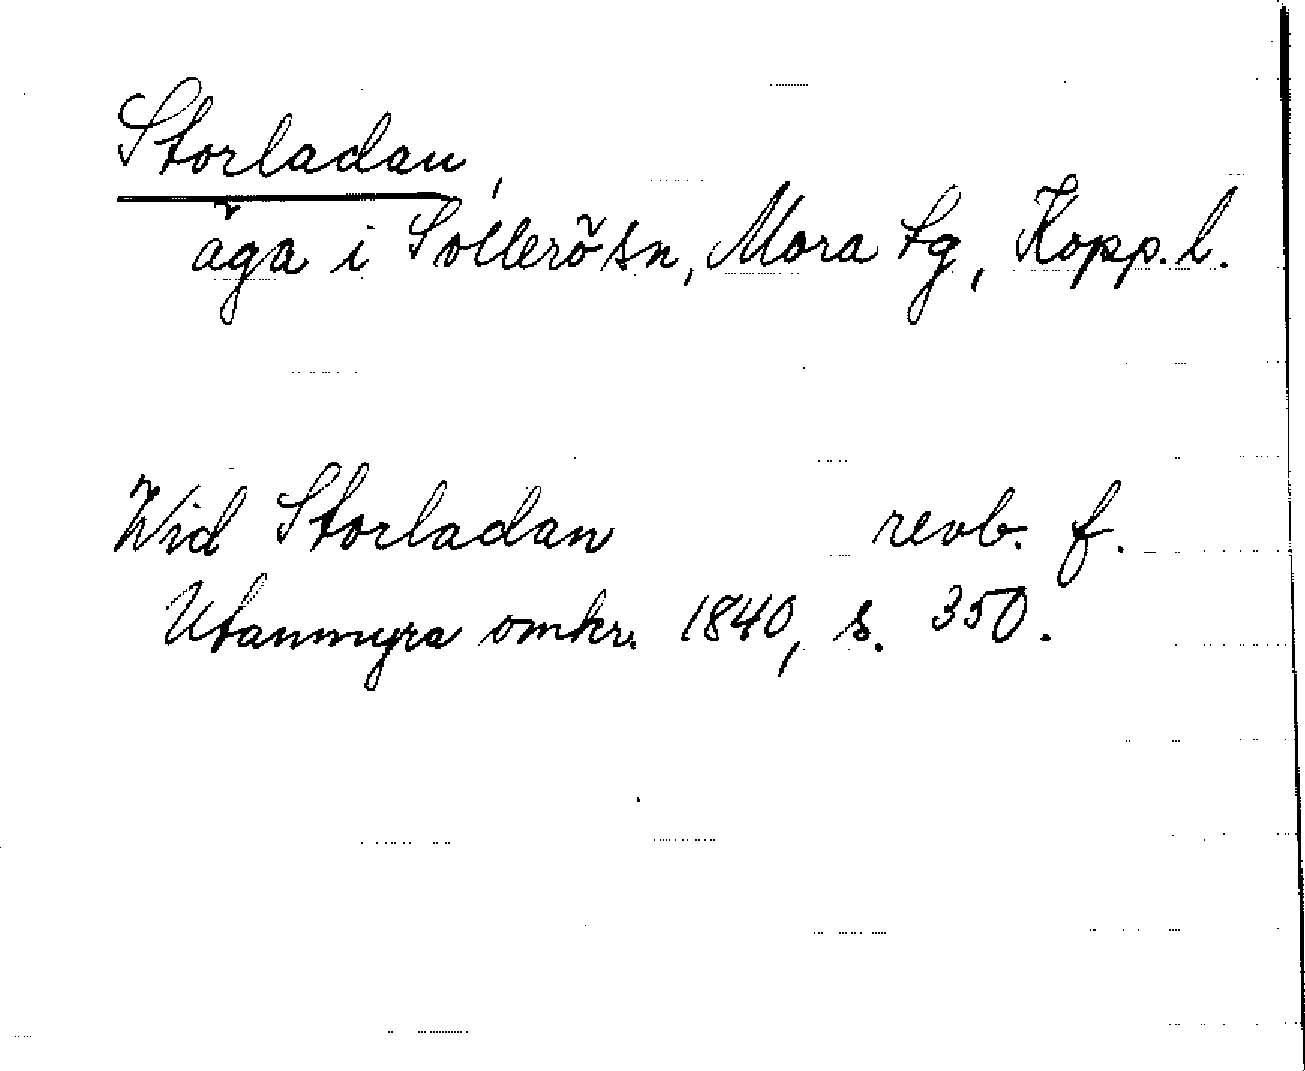 Storladan,
äga i Sollerö sn, Mora tg, Kopp. l.
Wid Storladan revb. f.
Utanmyra omkr. 1840, s. 350.